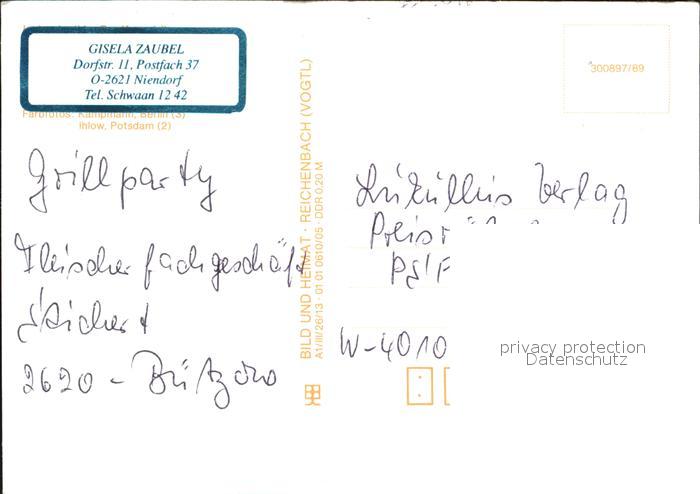 GISELA ZAUBEL
Dorfstr. 11, Postfach 37
O-2621 Niendorf
Tel. Schwaan 12 42
Farbfotos: Kampmann, Berlin (3)
Ihlow, Potsdam (2)
Grillparty
Fleischerfachgeschäft
2620 - Bützow
BILD UND HEIMAT · REICHENBACH (VOGTL)
A1/III/26/13 · 01 01 0610/05 · DDR 0,20 M
300897/89
Lukullus Verlag
Preisr
W-4010
privacy protection
Datenschutz